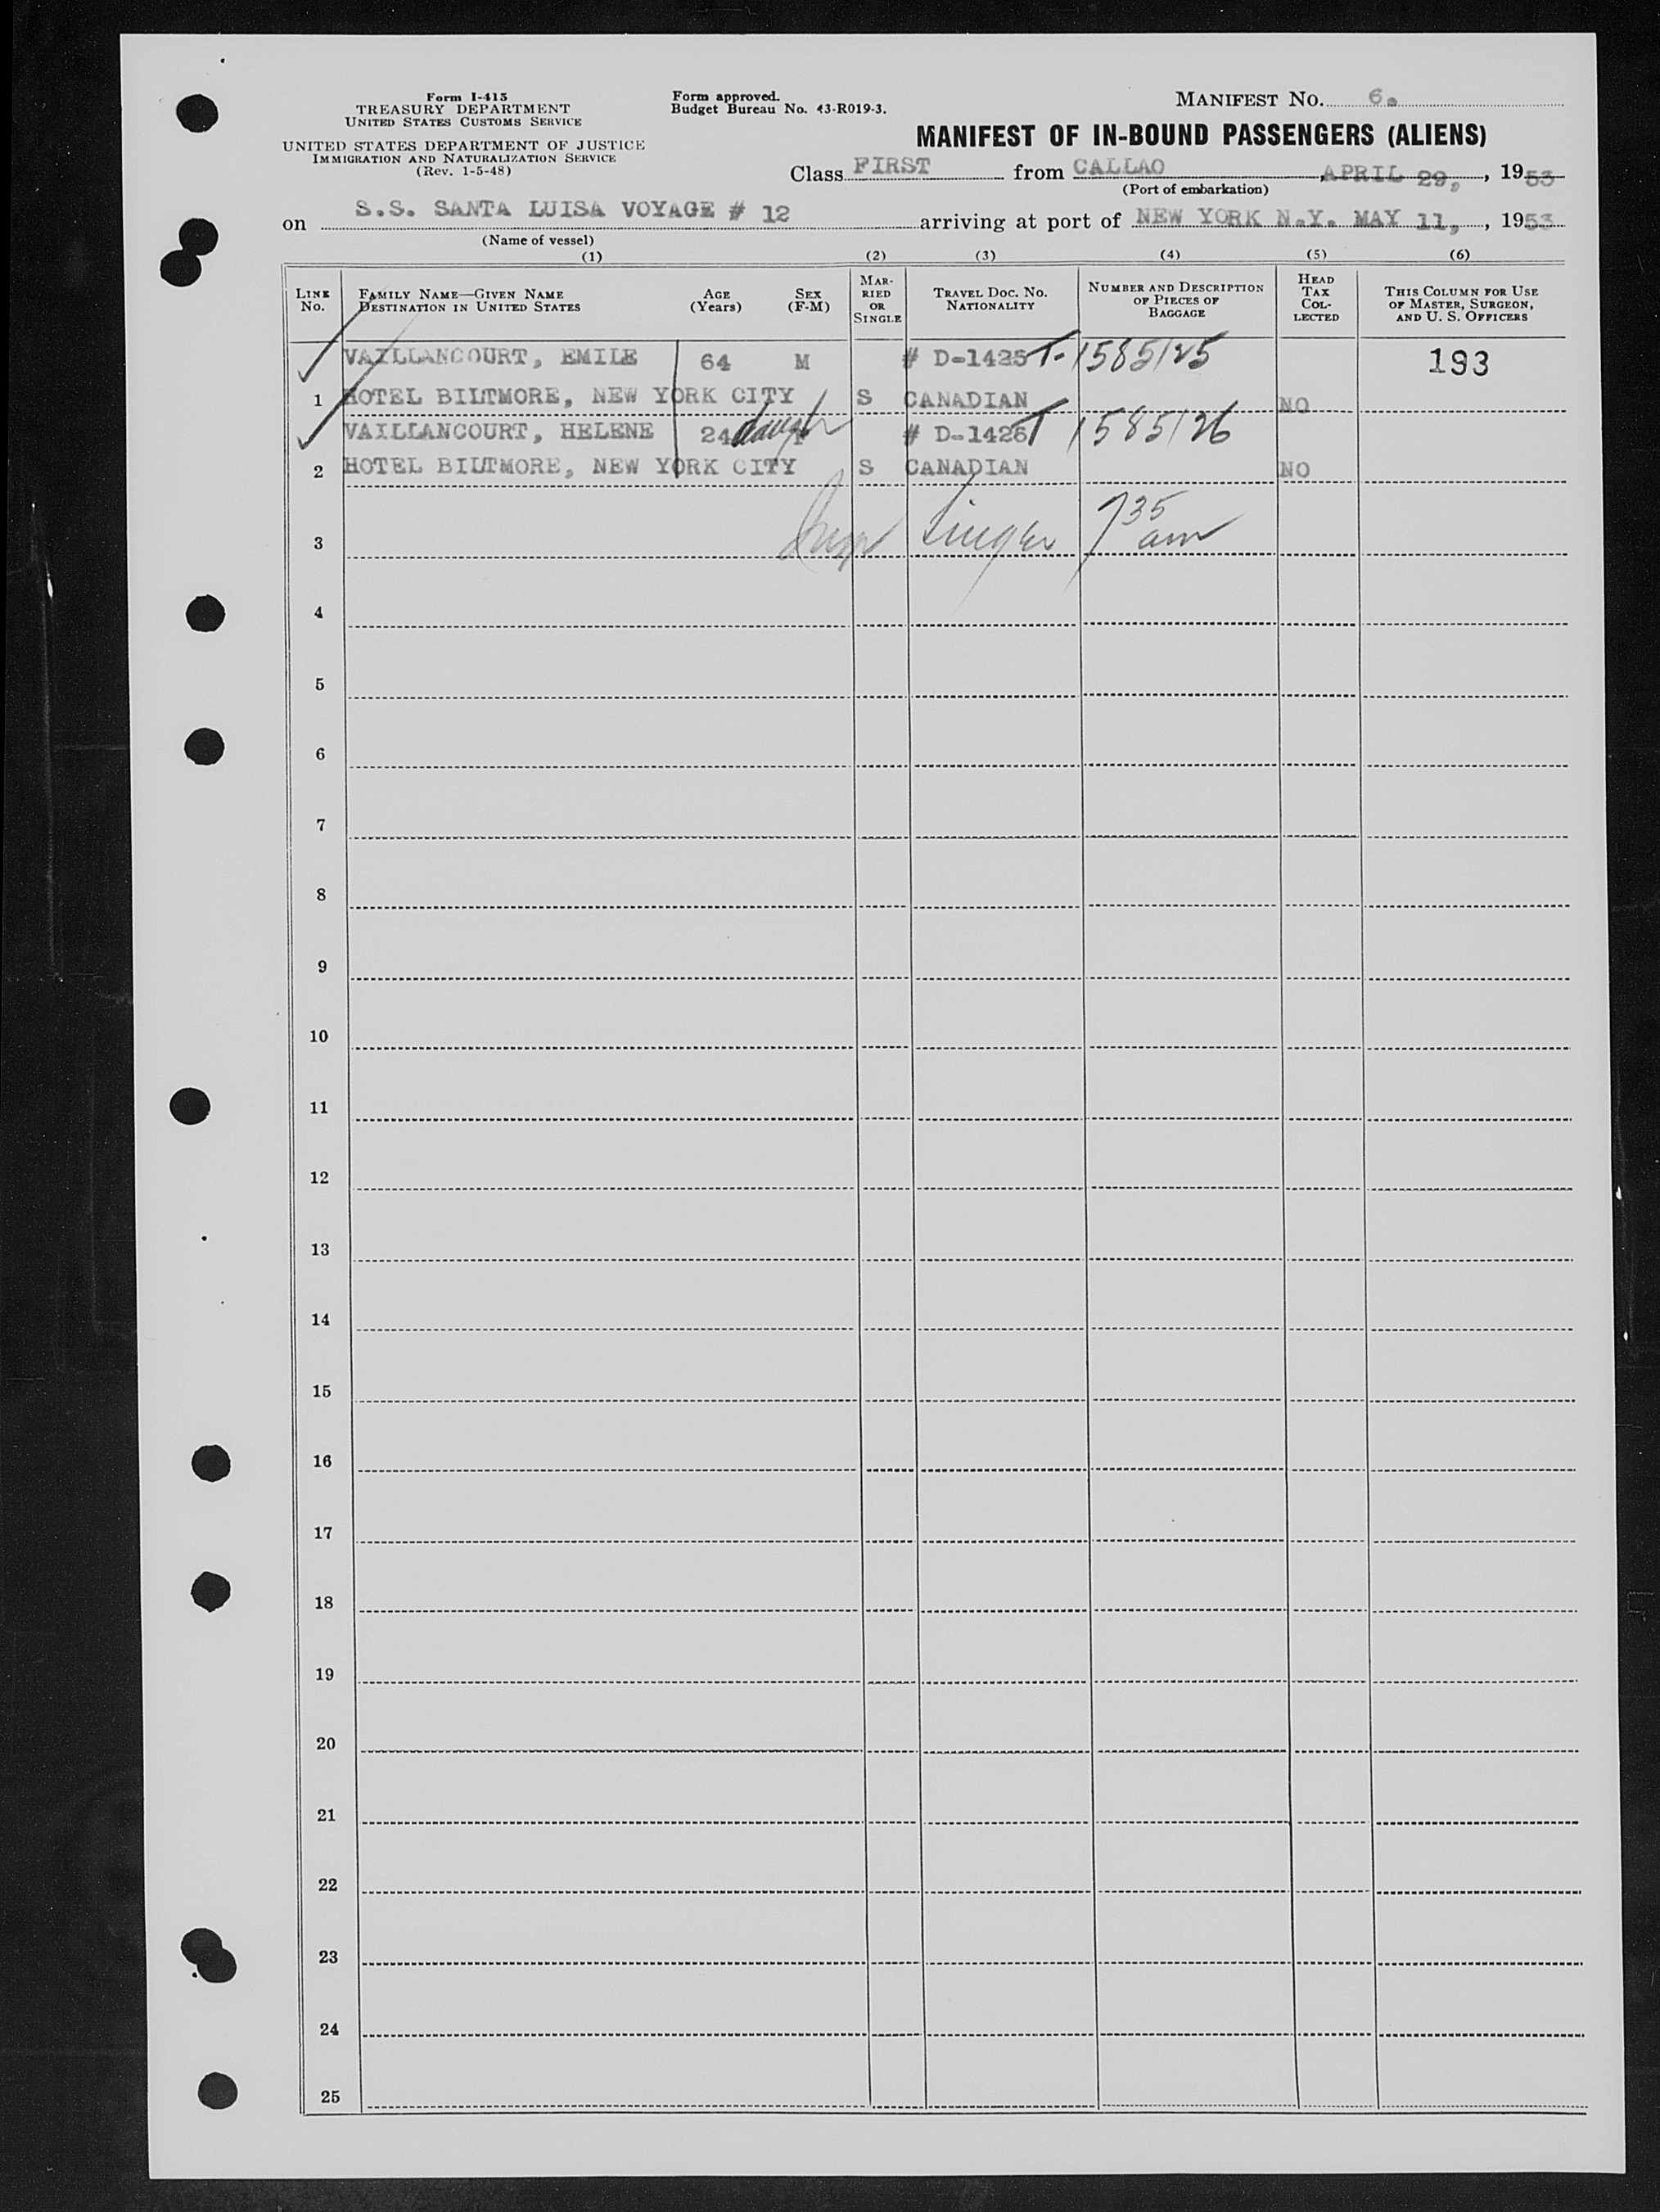 Form I-415
TREASURY DEPARTMENT
UNITED STATES CUSTOMS SERVICE
UNITED STATES DEPARTMENT OF JUSTICE
IMMIGRATION AND NATURALIZATION SERVICE
(Rev. 1-5-48)
Form approved.
Budget Bureau No. 43-R019-3.
MANIFEST NO. 6.
MANIFEST OF IN-BOUND PASSENGERS (ALIENS)
Class FIRST from CALLAO, APRIL 29, , 1953
(Port of embarkation)
on S.S. SANTA LUISA VOYAGE # 12 arriving at port of NEW YORK N.Y. MAY 11, , 1953
(Name of vessel)
(1) (2) (3) (4) (5) (6)
LINE NO. FAMILY NAME—GIVEN NAME DESTINATION IN UNITED STATES AGE (Years) SEX (F-M) MARRIED OR SINGLE TRAVEL DOC. NO. NATIONALITY NUMBER AND DESCRIPTION OF PIECES OF BAGGAGE HEAD TAX COLLECTED THIS COLUMN FOR USE OF MASTER, SURGEON, AND U. S. OFFICERS
VAILLANCOURT, EMILE 64 M # D-1425 T-1585125 193
1 HOTEL BILTMORE, NEW YORK CITY S CANADIAN NO
VAILLANCOURT, HELENE 24 daugh F # D-1426 T 1585126
2 HOTEL BILTMORE, NEW YORK CITY S CANADIAN NO
3 7 35 am
4
5
6
7
8
9
10
11
12
13
14
15
16
17
18
19
20
21
22
23
24
25